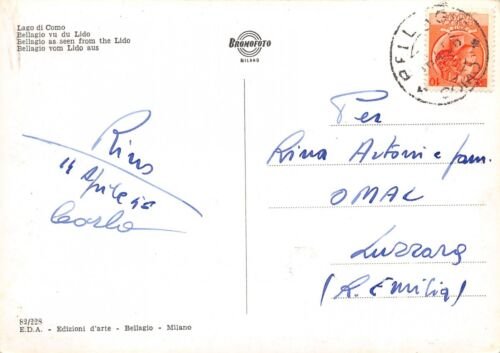 Lago di Como
Bellagio vu du Lido
Bellagio as seen from the Lido
Bellagio vom Lido aus
BROMOFOTO
MILANO
Per
Rina Antoni e fam.
OMAC
Luzzara
(R. Emilia)
Rino
11 Aprile
Carla
82/228
E.D.A. - Edizioni d'arte - Bellagio - Milano